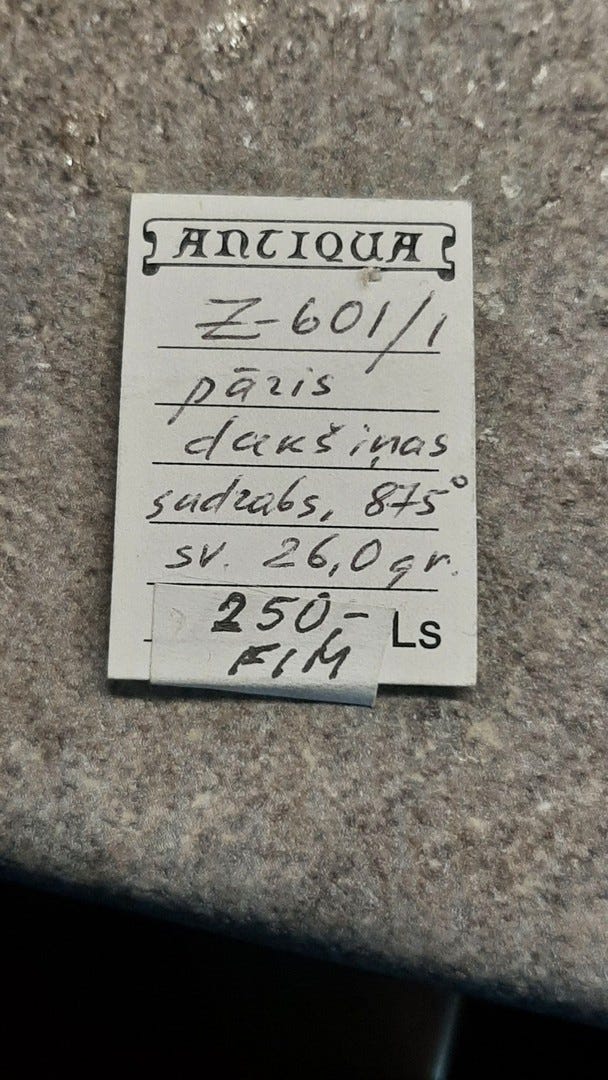 ANTIQUA
Z-601/1
pāris
dakšiņas
sudrabs, 875°
sv. 26,0 gr.
250,- Ls
FIM